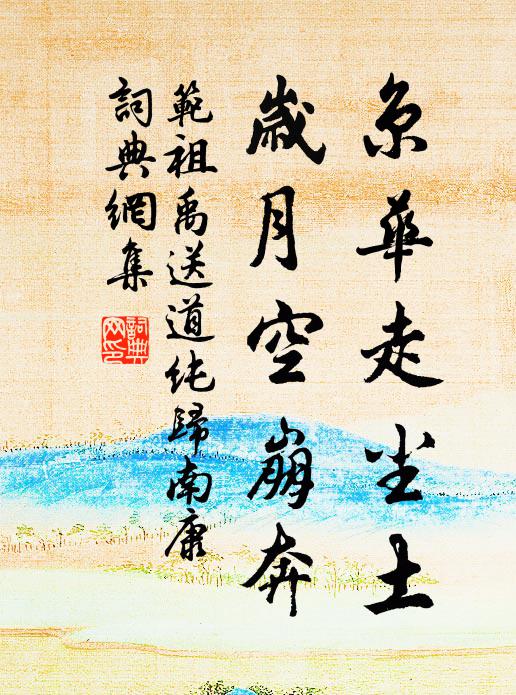 京華走尘土
歲月空崩奔
範祖禹送道純歸南康
詞典網集
詞典網印